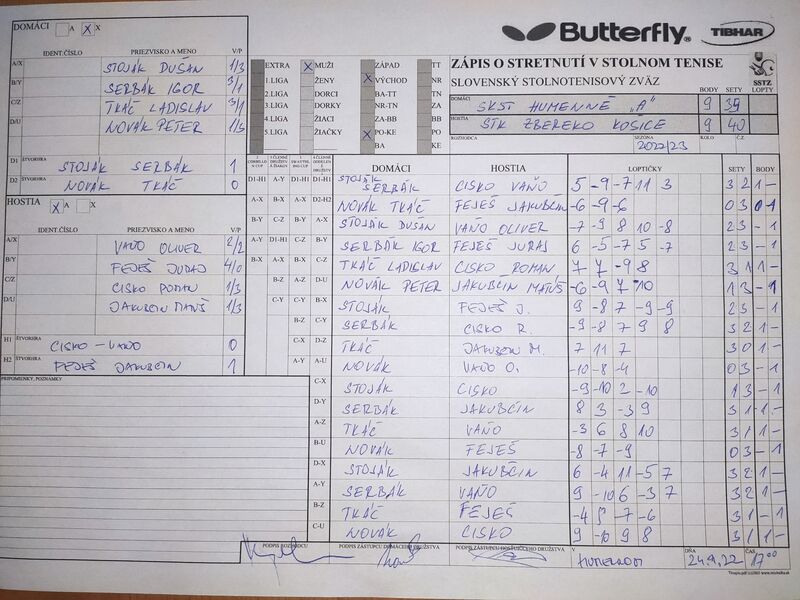 DOMÁCI A X X
Butterfly TIBHAR
IDENT.ČÍSLO PRIEZVISKO A MENO V/P
A/X STOJÁK DUŠAN 1/3
B/Y SERBÁK IGOR 3/1
C/Z TKÁČ LADISLAV 3/1
D/U NOVÁK PETER 1/3
D1 ŠTVORHRA STOJÁK SERBÁK 1
D2 ŠTVORHRA NOVÁK TKÁČ 0
EXTRA X MUŽI ZÁPAD TT
1.LIGA ŽENY X VÝCHOD NR
2.LIGA DORCI BA-TT TN
3.LIGA DORKY NR-TN ZA
4.LIGA ŽIACI ZA-BB BB
5.LIGA ŽIAČKY X PO-KE PO
BA KE
ZÁPIS O STRETNUTÍ V STOLNOM TENISE
SLOVENSKÝ STOLNOTENISOVÝ ZVÄZ
SSTZ
BODY SETY LOPTY
DOMÁCI SKST HUMENNÉ „A" 9 39
HOSTIA STK ZBEREKO KOŠICE 9 40
ROZHODCA SEZÓNA KOLO Č.Z.
2022/23
HOSTIA A X X
IDENT.ČÍSLO PRIEZVISKO A MENO V/P
A/X VAŇO OLIVER 2/2
B/Y FEJEŠ JURAJ 4/0
C/Z CISKO ROMAN 1/3
D/U JAKUBČIN MATÚŠ 1/3
H1 ŠTVORHRA CISKO - VAŇO 0
H2 ŠTVORHRA FEJEŠ JAKUBČIN 1
PRIPOMIENKY, POZNÁMKY
DOMÁCI HOSTIA LOPTIČKY SETY BODY
D1-H1 A-Y D1-H1 D1-H1 STOJÁK SERBÁK CISKO VAŇO 5 -9 -7 11 3 3 2 1 -
A-X B-X A-X D2-H2 NOVÁK TKÁČ FEJEŠ JAKUBČIN -6 -9 -6 0 3 0 1
B-Y C-Z B-Y A-X STOJÁK DUŠAN VAŇO OLIVER -7 -9 8 10 -8 2 3 - 1
A-Y D1-H1 C-Z B-Y SERBÁK IGOR FEJEŠ JURAJ 6 -5 -7 5 -7 2 3 - 1
B-X A-X B-X C-Z TKÁČ LADISLAV CISKO ROMAN 7 7 -9 8 3 1 1 -
B-Z A-Z D-U NOVÁK PETER JAKUBČIN MATÚŠ -6 -9 7 -10 1 3 - 1
C-Y C-Y B-X STOJÁK FEJEŠ J. 9 -8 7 -9 -9 2 3 - 1
B-Z C-Y SERBÁK CISKO R. -9 -8 7 9 8 3 2 1 -
C-X D-Z TKÁČ JAKUBČIN M. 7 11 7 3 0 1 -
A-Y A-U NOVÁK VAŇO O. -10 -8 -4 0 3 - 1
C-X STOJÁK CISKO -9 -10 2 -10 1 3 - 1
D-Y SERBÁK JAKUBČIN 8 3 -3 9 3 1 1 -
A-Z TKÁČ VAŇO -3 6 8 10 3 1 1 -
B-U NOVÁK FEJEŠ -8 -7 -9 0 3 - 1
D-X STOJÁK JAKUBČIN 6 -4 11 -5 7 3 2 1 -
A-Y SERBÁK VAŇO 9 -10 6 -3 7 3 2 1 -
B-Z TKÁČ FEJEŠ -4 5 -7 -6
C-U NOVÁK CISKO 9 -10 9 8 3 1 1 -
PODPIS ROZHODCU PODPIS ZÁSTUPCU DOMÁCEHO DRUŽSTVA PODPIS ZÁSTUPCU HOSŤUJÚCEHO DRUŽSTVA V HUMENNOM DŇA 24.9.22 ČAS 17 00